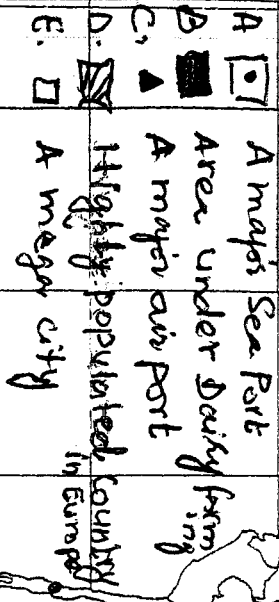 A A major Sea Port
B Area under Dairy farming
C. A major airport
D. Highly populated Country in Europe
E. A mega city